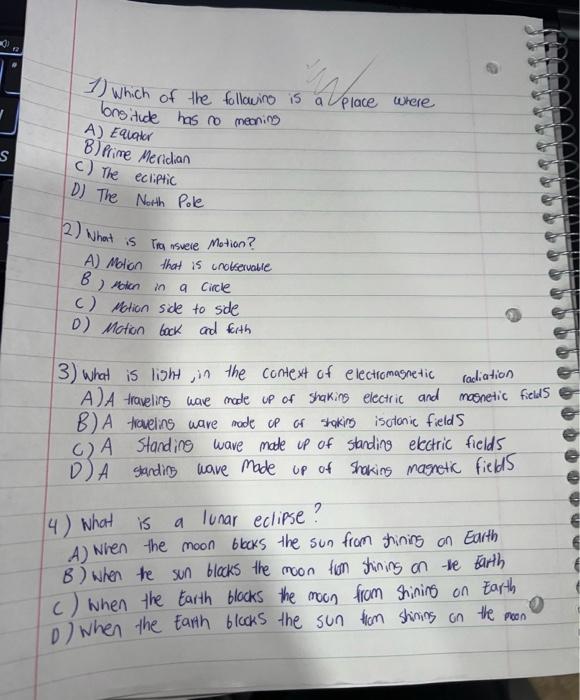 1) Which of the following is a place where
longitude has no meaning
A) Equator
B) Prime Meridian
C) The ecliptic
D) The North Pole
2) What is Transvere Motion?
A) Motion that is unobservable
B) Motion in a Circle
C) Motion side to side
D) Motion back and forth
3) What is light, in the context of electromagnetic radiation
A) A traveling wave made up of shaking electric and magnetic fields
B) A traveling wave made up of shaking isotonic fields
C) A Standing wave made up of standing electric fields
D) A standing wave Made up of shaking magnetic fields
4) What is a lunar eclipse?
A) When the moon blocks the sun from shining on Earth
B) When the sun blocks the moon from shining on the Earth
C) When the Earth blocks the moon from shining on Earth
D) When the Earth blocks the sun from shining on the moon